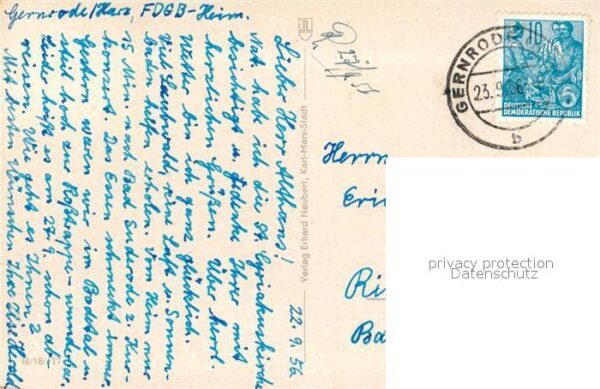 Gernrode/Harz, FDGB-Heim.
22.9.56
Lieber Herr Althans!
Nun habe ich die St. Cyriakuskirche
besichtigt u. gedenke Ihrer mit
herzlichen Grüßen. Über herrl.
Wetter bin ich ganz glücklich.
Viel Laubwald, reine Luft u. Sonnen-
baden helfen erholen. Vom Heim nur
15 Min. nach Bad Suderode z. Kur-
konzert. Das Essen schmeckt immer.
Gestern waren wir im Bodetal u.
steil hoch zur Roßtrappe - wunderbar.
Leider heißt es am 27.9. schon ab-
reisen. Wie geht es Ihnen?
Mit besten Wünschen Ihre Ilse Herold
III/18/117
Verlag Erhard Neubert, Karl-Marx-Stadt
10
DEUTSCHE
DEMOKRATISCHE REPUBLIK
GERNRODE
23.9.56
b
Herrn
Eri
Ri
Ba
privacy protection
Datenschutz